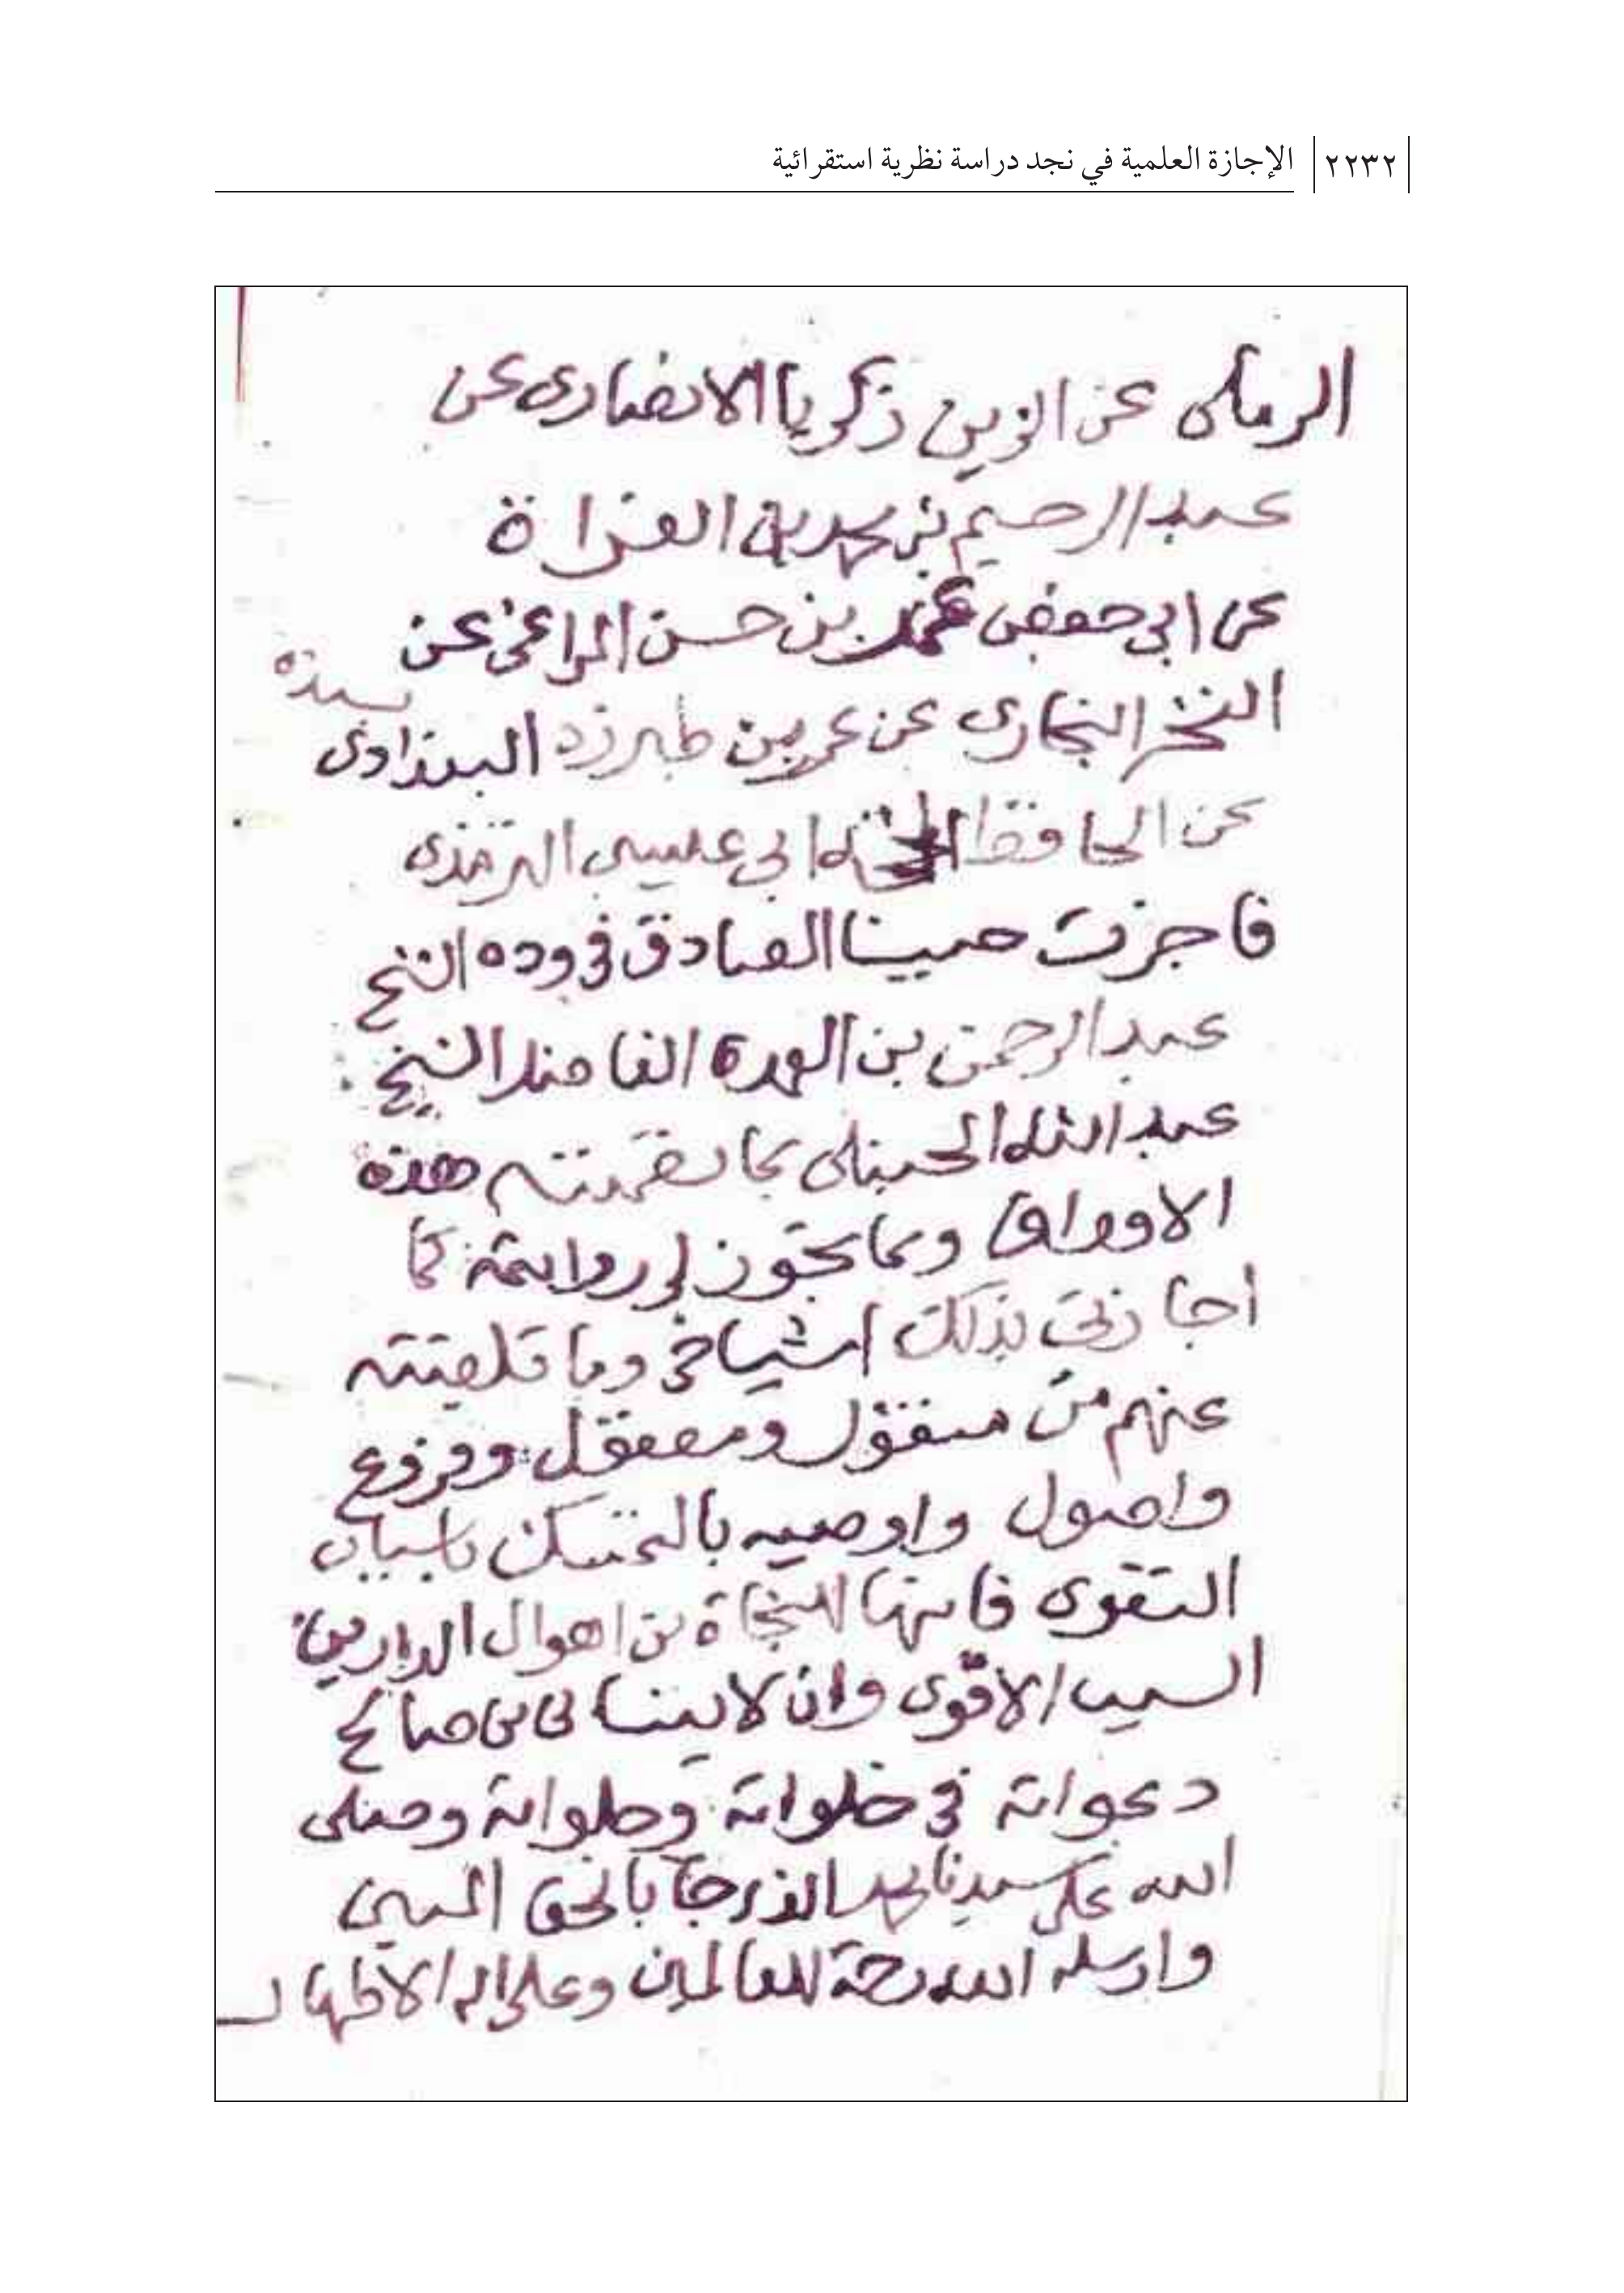 ٢٢٣٢ الإجازة العلمية في نجد دراسة نظرية استقرائية
الرملى عن الزين زكريا الانصارى عن
عبد الرحيم بن محمد بن الفراة
عن ابى حفص عمر بن حسن المراغى عن
الفخر البخارى عن عمر بن طبرزد البغدادى بسنده
عن الحافظ ابى عيسى الترمذى
فاجزت حبيبنا الصادق فى وده الشيخ
عبد الرحمن بن العمدة الفاضل الشيخ
عبد الله الحنبلى بما تضمنته هذه
الاوراق وبما يجوز لى روايته كما
أجازنى بذلك اشياخى وما تلقيته
عنهم من منقول ومعقول وفروع
واصول واوصيه بالتمسك باسباب
التقوى فانها للنجاة من اهوال الدارين
السبب الاقوى وان لا ينسانى من صالح
دعواته فى خلواته وجلواته وصلى
الله على سيدنا محمد الذى جا بالحق المبين
وارسله الله رحمة للعالمين وعلى اله الاطهار